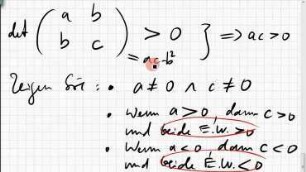 det ( a b
b c ) > 0 } ⇒ ac > 0
= ac - b²
Zeigen Sie: • a ≠ 0 ∧ c ≠ 0
• Wenn a > 0, dann c > 0
und beide E.W. > 0
• Wenn a < 0, dann c < 0
und beide E.W. < 0